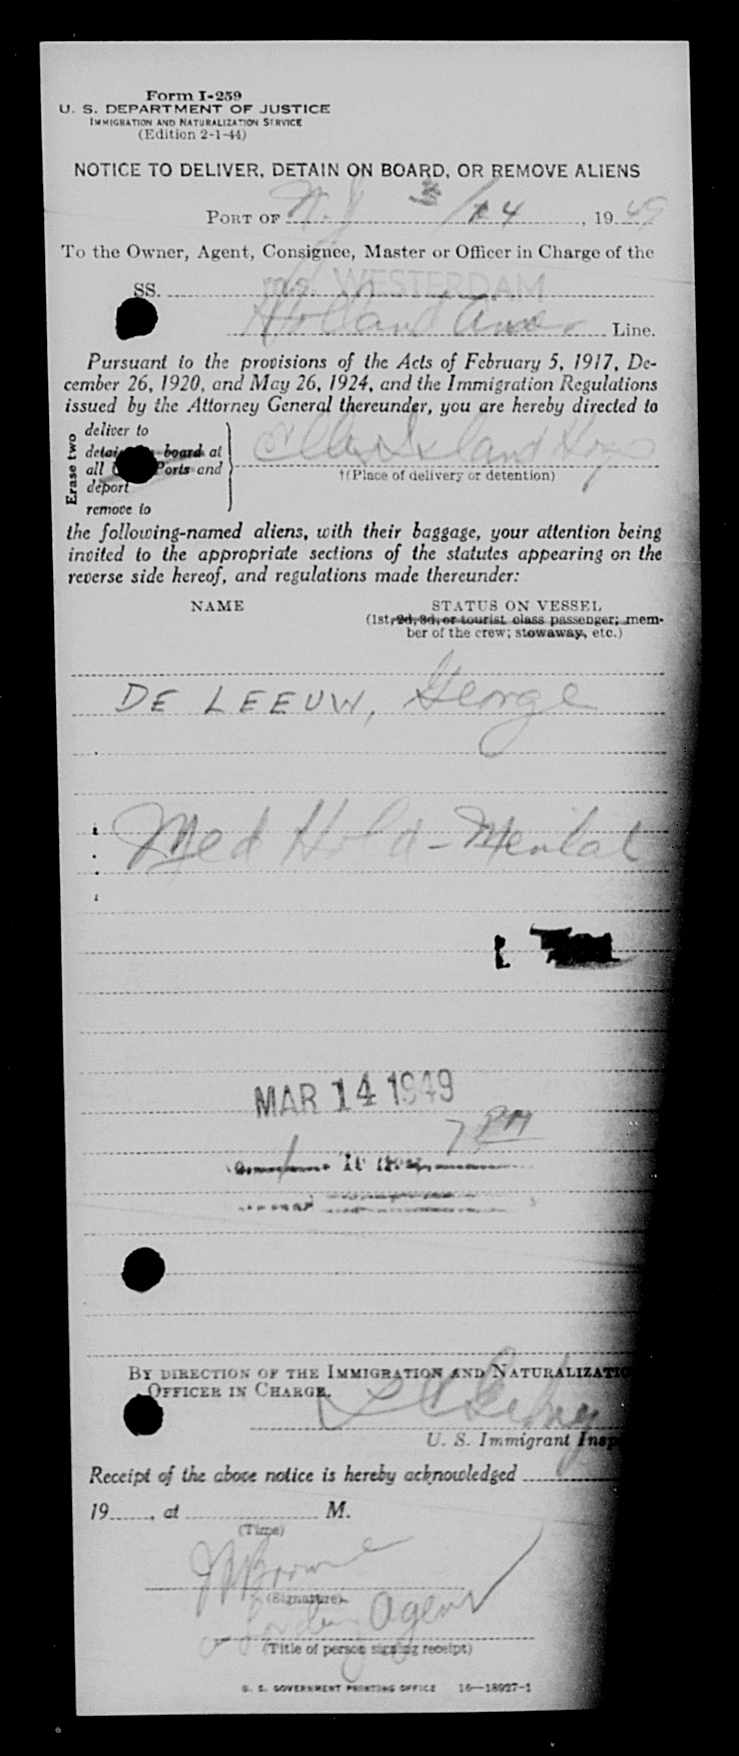 Form I-259
U. S. DEPARTMENT OF JUSTICE
IMMIGRATION AND NATURALIZATION SERVICE
(Edition 2-1-44)
NOTICE TO DELIVER, DETAIN ON BOARD, OR REMOVE ALIENS
PORT OF N.Y. 3/14, 1949
To the Owner, Agent, Consignee, Master or Officer in Charge of the
SS. WESTERDAM
Holland Amer Line.
Pursuant to the provisions of the Acts of February 5, 1917, De-
cember 26, 1920, and May 26, 1924, and the Immigration Regulations
issued by the Attorney General thereunder, you are hereby directed to
Erase two
deliver to
board at
all Ports and
deport
remove to
Ellis Island Hosp
†(Place of delivery or detention)
the following-named aliens, with their baggage, your attention being
invited to the appropriate sections of the statutes appearing on the
reverse side hereof, and regulations made thereunder:
NAME
STATUS ON VESSEL
(1st, 2d, 3d, or tourist class passenger; mem-
ber of the crew; stowaway, etc.)
DE LEEUW, George
Med Hold - Mental
MAR 14 1949
7 PM
BY DIRECTION OF THE IMMIGRATION AND NATURALIZATIO
OFFICER IN CHARGE.
U. S. Immigrant Insp
Receipt of the above notice is hereby acknowledged
19......, at .................... M.
(Time)
Browne
(Signature)
Agent
(Title of person signing receipt)
U. S. GOVERNMENT PRINTING OFFICE 16—18927-1